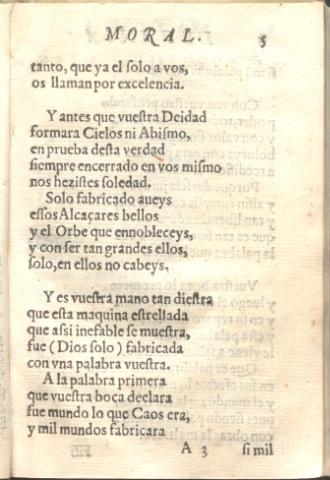 MORAL. 5
tanto, que ya el solo a vos,
os llaman por excelencia.
Y antes que vuestra Deidad
formara Cielos ni Abismo,
en prueba desta verdad
siempre encerrado en vos mismo
nos hezistes soledad.
Solo fabricado aueys
essos Alcaçares bellos
y el Orbe que ennobleceys,
y con ser tan grandes ellos,
solo, en ellos no cabeys.
Y es vuestra mano tan diestra
que esta maquina estrellada
que assi inefable se muestra,
fue (Dios solo) fabricada
con vna palabra vuestra.
A la palabra primera
que vuestra boca declara
fue mundo lo que Caos era,
y mil mundos fabricara
A 3 si mil